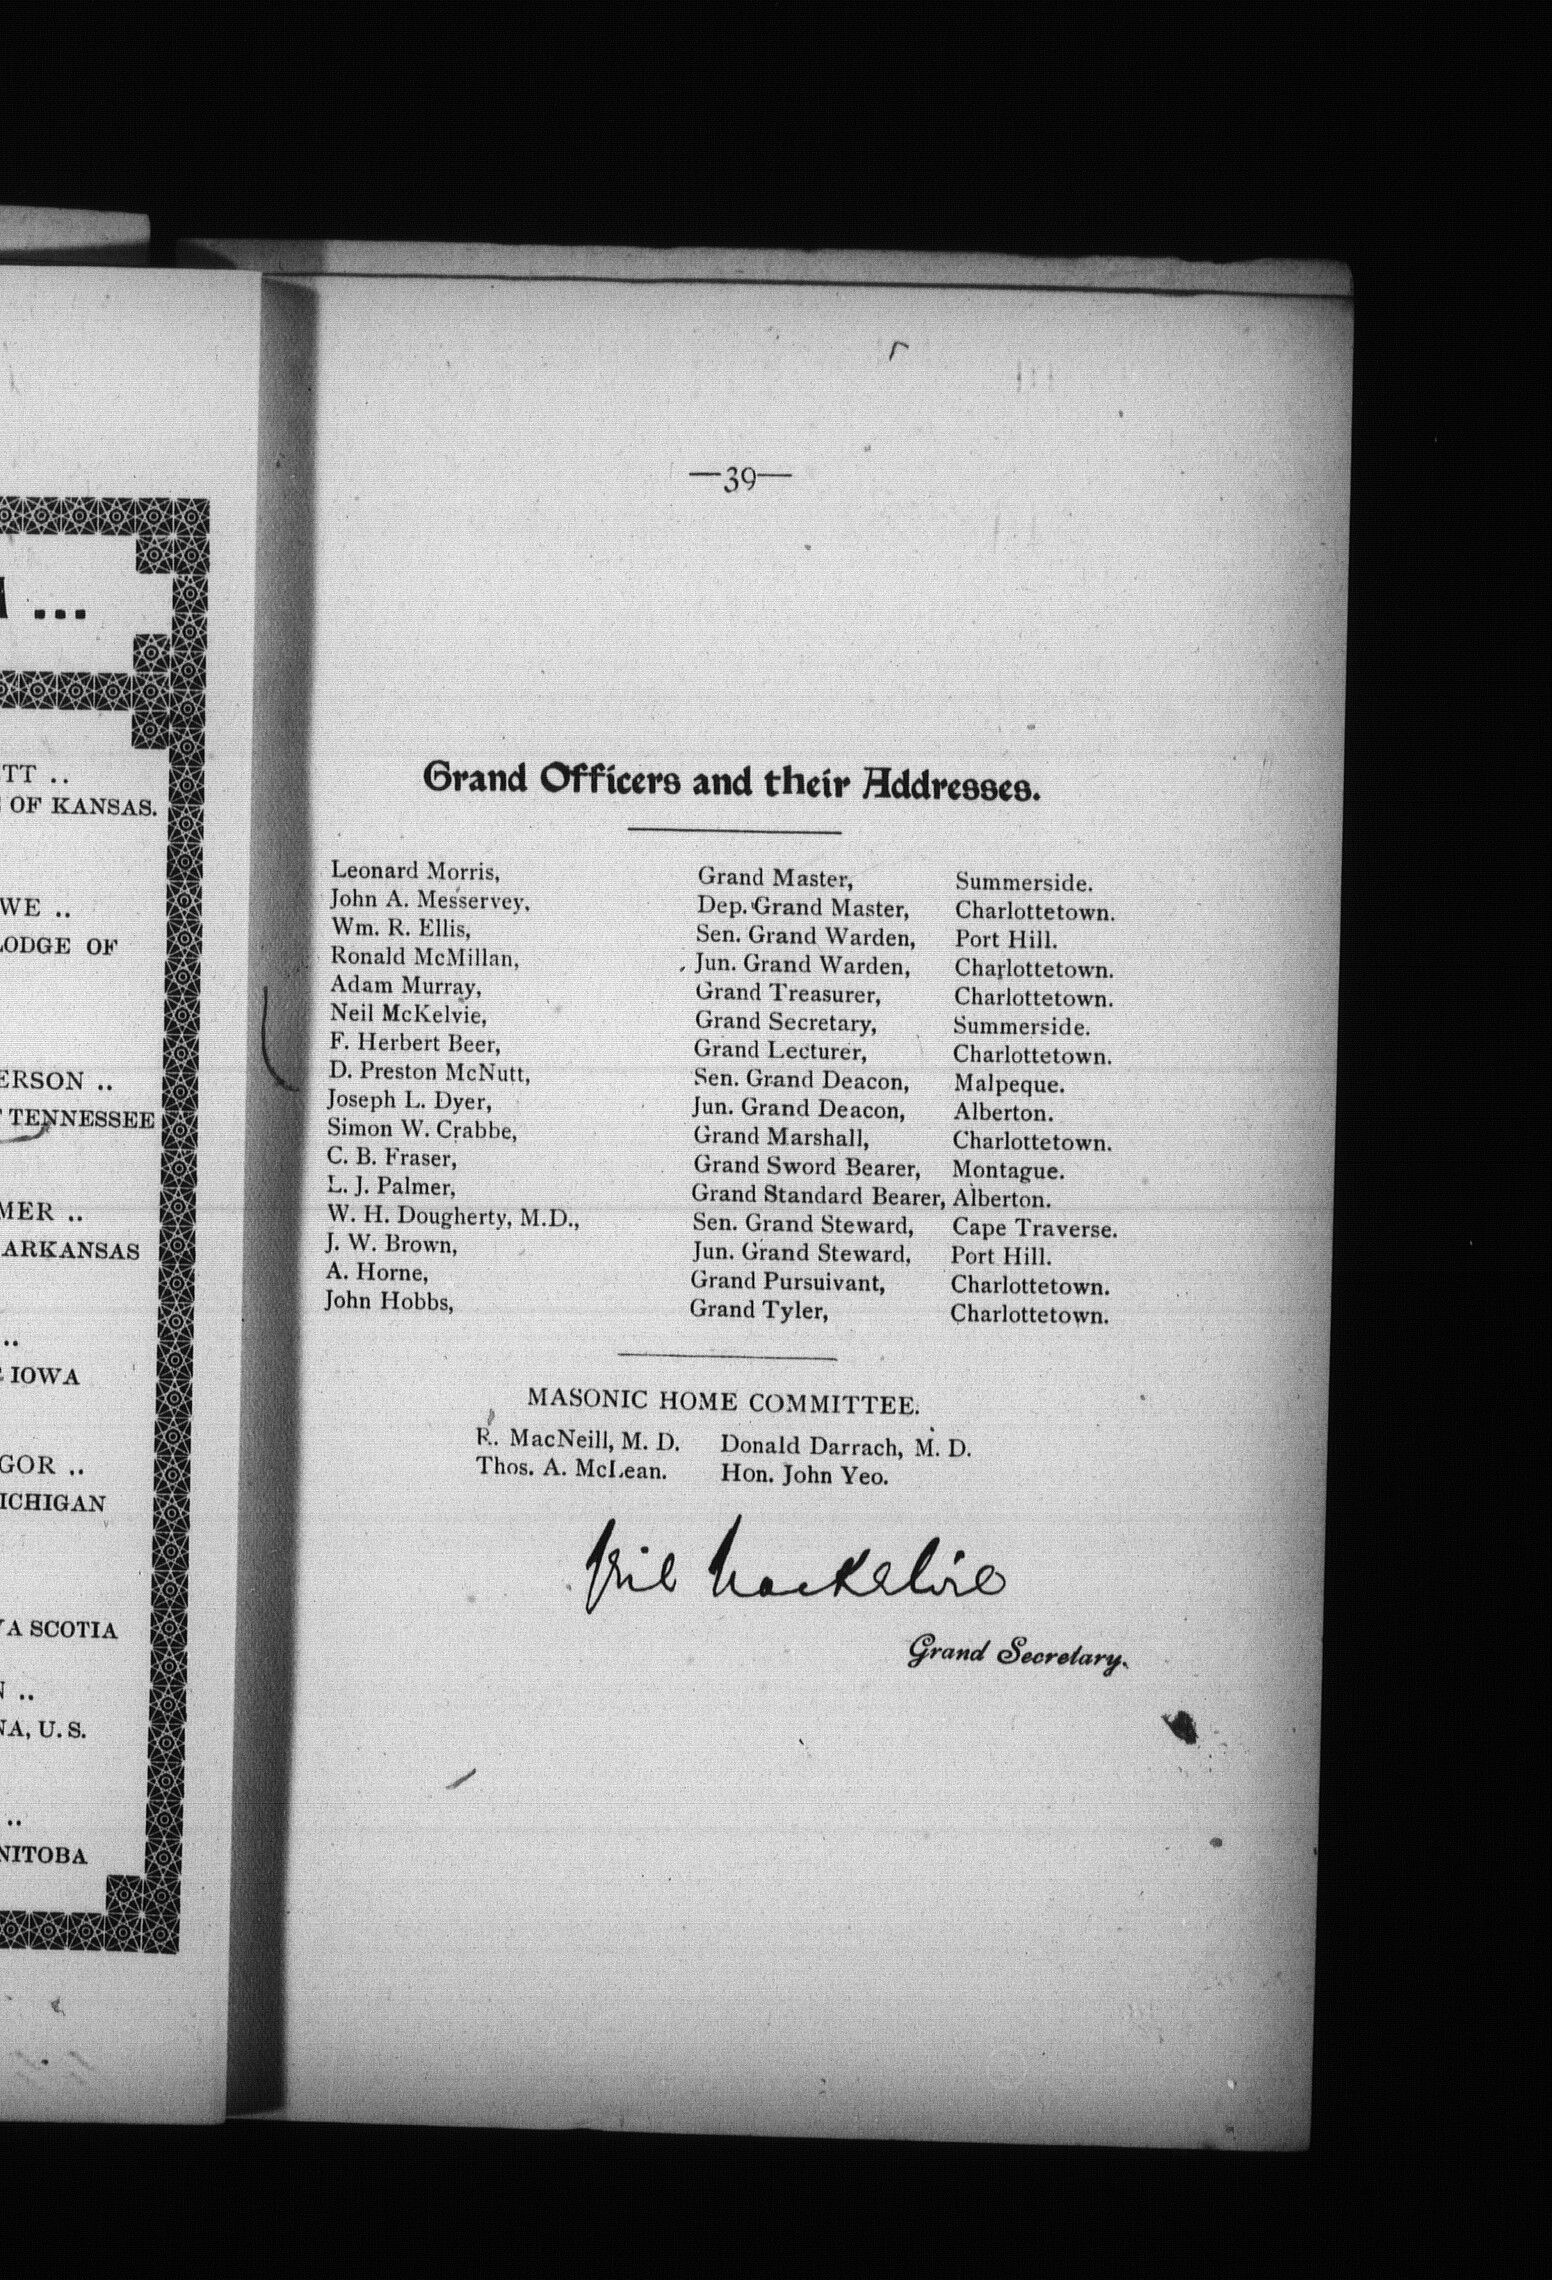 ...
TT ..
OF KANSAS.
WE ..
LODGE OF
ERSON ..
TENNESSEE
MER ..
ARKANSAS
..
IOWA
GOR ..
ICHIGAN
VA SCOTIA
N ..
NA, U. S.
..
NITOBA
—39—
Grand Officers and their Addresses.
Leonard Morris, Grand Master, Summerside.
John A. Messervey, Dep. Grand Master, Charlottetown.
Wm. R. Ellis, Sen. Grand Warden, Port Hill.
Ronald McMillan, Jun. Grand Warden, Charlottetown.
Adam Murray, Grand Treasurer, Charlottetown.
Neil McKelvie, Grand Secretary, Summerside.
F. Herbert Beer, Grand Lecturer, Charlottetown.
D. Preston McNutt, Sen. Grand Deacon, Malpeque.
Joseph L. Dyer, Jun. Grand Deacon, Alberton.
Simon W. Crabbe, Grand Marshall, Charlottetown.
C. B. Fraser, Grand Sword Bearer, Montague.
L. J. Palmer, Grand Standard Bearer, Alberton.
W. H. Dougherty, M.D., Sen. Grand Steward, Cape Traverse.
J. W. Brown, Jun. Grand Steward, Port Hill.
A. Horne, Grand Pursuivant, Charlottetown.
John Hobbs, Grand Tyler, Charlottetown.
MASONIC HOME COMMITTEE.
R. MacNeill, M. D. Donald Darrach, M. D.
Thos. A. McLean. Hon. John Yeo.
Neil MacKelvie
Grand Secretary.